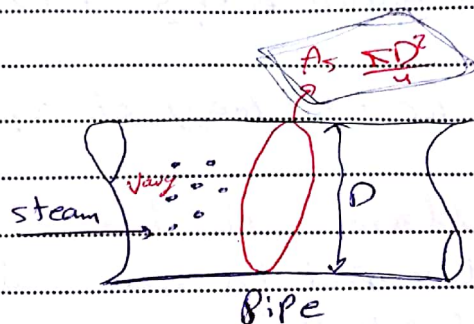 A = πD²/4
Vavg
steam
D
Pipe